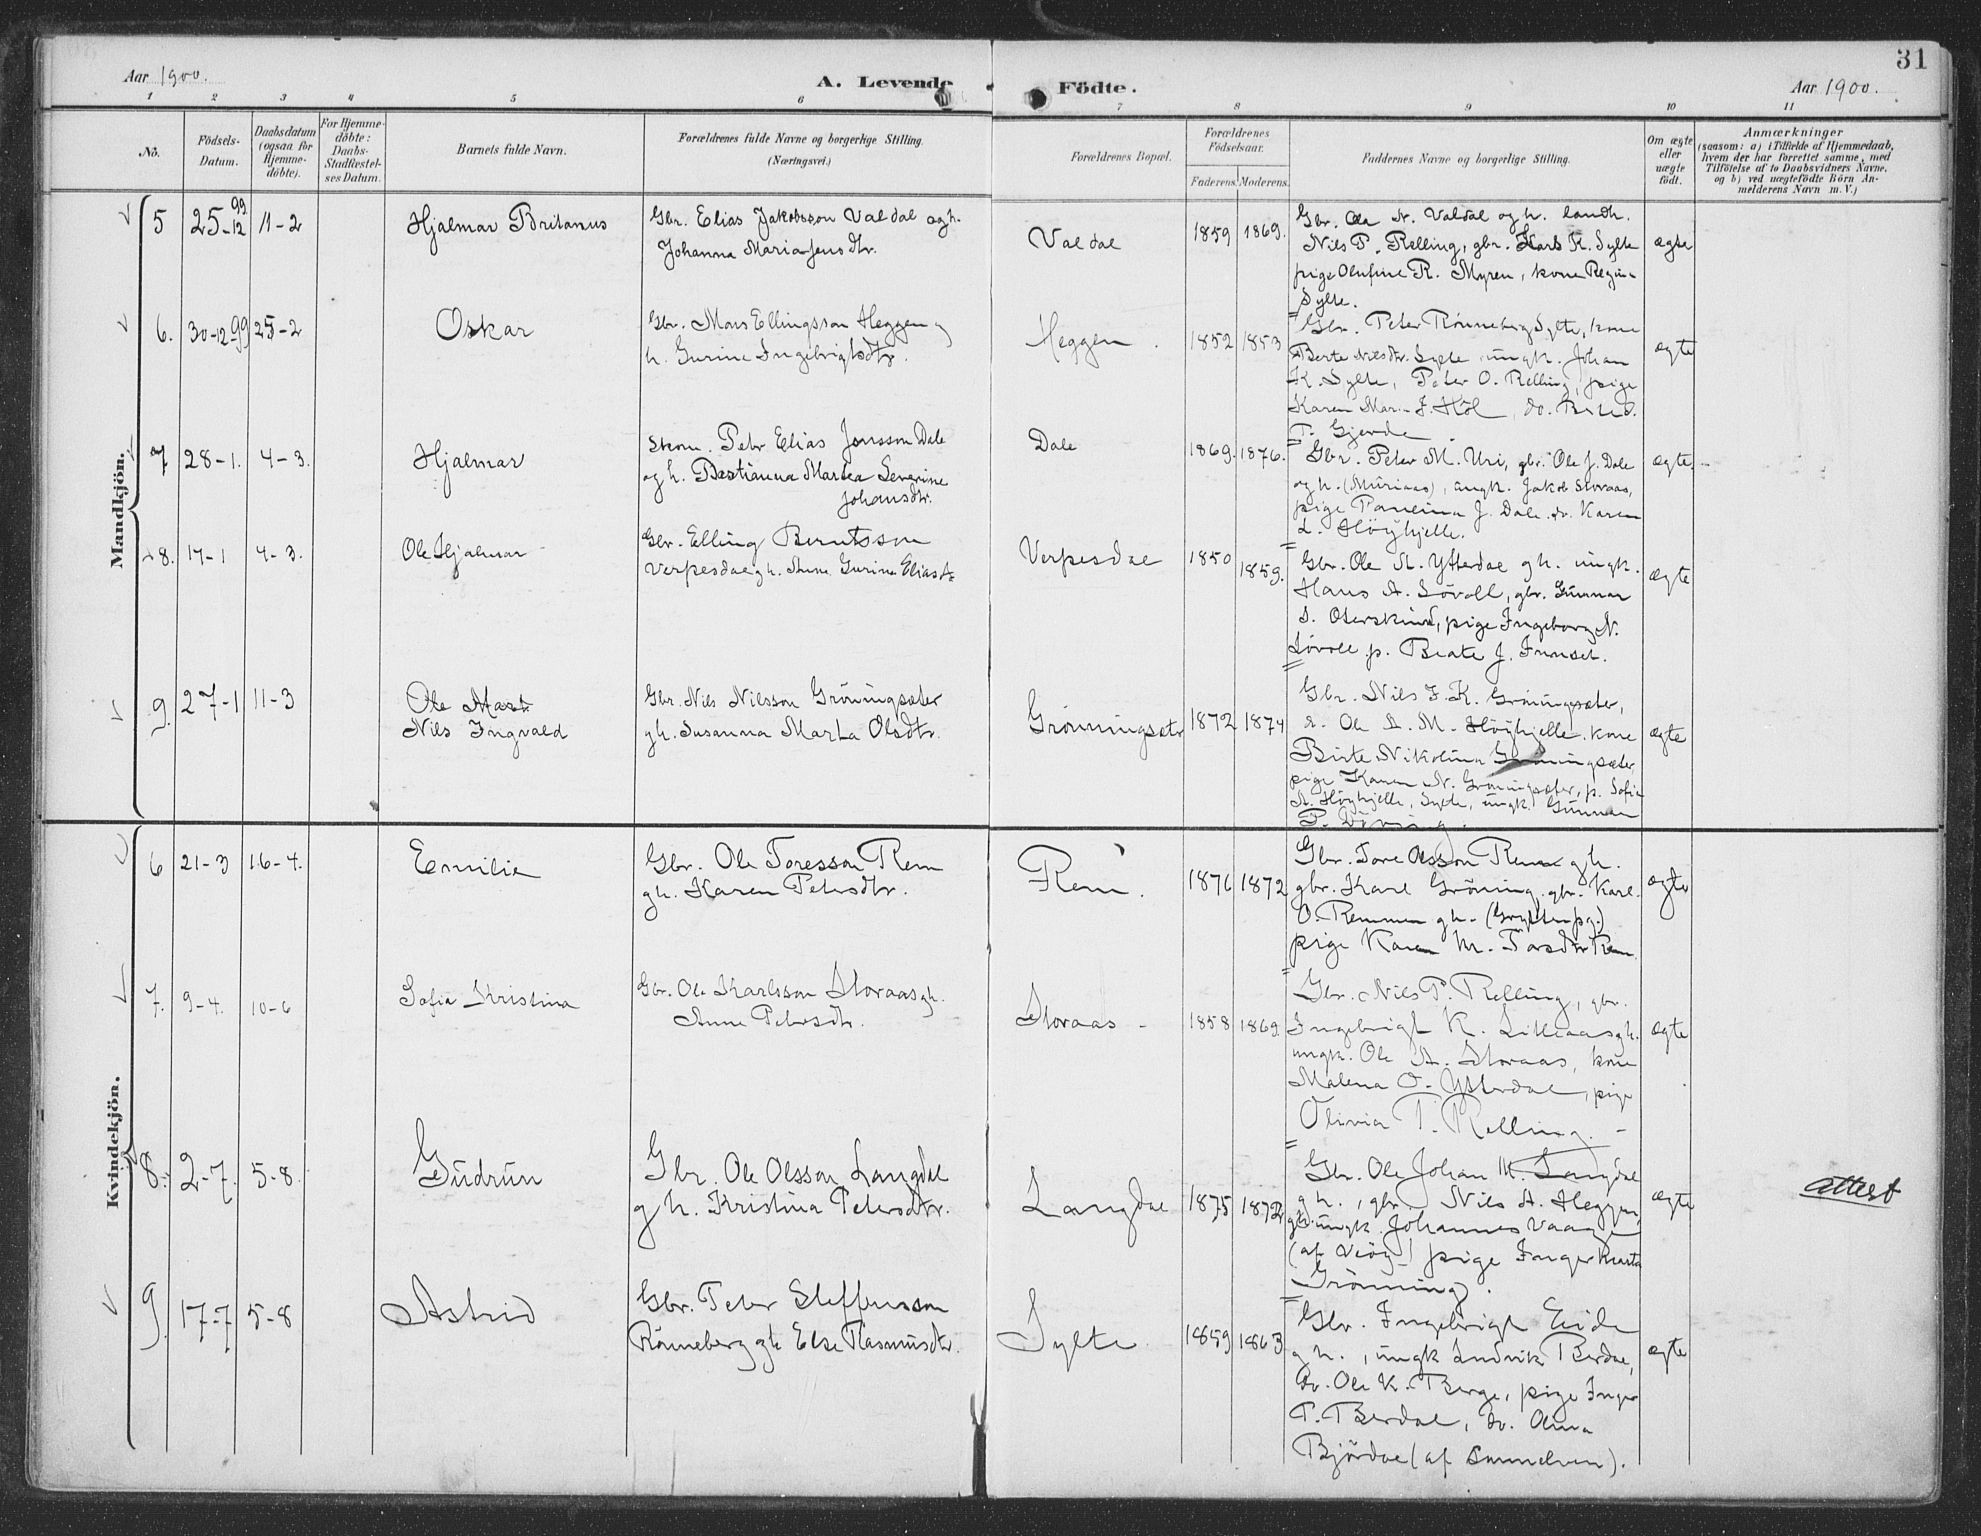 31
Aar 1900.
A. Levende Födte.
Aar 1900.
1 2 3 4 5 6 7 8 9 10 11
No.
Födsels-
Datum.
Daabsdatum
(ogsaa for
Hjemme-
döbte).
For Hjemme-
döbte:
Daabs-
Stadfæstel-
ses Datum.
Barnets fulde Navn.
Forældrenes fulde Navne og borgerlige Stilling.
(Næringsvei.)
Forældrenes Bopæl.
Forældrenes
Födselsaar.
Faderens. Moderens.
Faddernes Navne og borgerlige Stilling.
Om ægte
eller
uægte
födt.
Anmærkninger
(saasom: a) i Tilfælde af Hjemmedaab,
hvem der har forrettet samme, med
Tilföielse af to Daabsvidners Navne,
og b) ved uægtefödte Börn An-
melderens Navn m. V.)
Mandkjön.
5 25-12 99 11-2
Hjalmar Britanus
Gbr. Elias Jakobsson Valdal og h.
Johanna Maria Jensdtr.
Valdal
1859 1869.
Gbr. Ola A. Valdal og h. landh.
Nils P. Relling, gbr. Karls K. Sylte
pige Olufine R. Myren, kone Regine
Sylte.
ægte
6. 30-12-99 25-2
Oskar
Gbr. Mons Ellingsson Heggen og
h. Gurine Ingebrigtsdtr.
Heggen.
1852 1853
Gbr. Peter Rønneberg Sylte, kone
Berte Nilsdtr. Sylte ungk. Johan
K. Sylte, Peter O. Relling, pige
Karen Mar. J. Høl, do.
P. Gjerde
ægte
7 28-1. 4-3.
Hjalmar
Skom. Petr Elias Jonsson Dale
og h. Bastianna Martea Severine
Johansdtr.
Dale
1869. 1876.
Gbr. Peter M. Uri, gbr. Ole J. Dale
og h. (Muriaas), ungk. Jakob Storaas,
pige Paulina J. Dale do. Karen
L. Höyhjelle.
ægte
8. 17-1 4-3.
Ole Hjalmar
Gbr. Elling Berntsson
Verpesdal g h. Anne Gurine Eliasd.
Verpesdal
1850 1859.
Gbr. Ole A. Ytterdal g h. ungk.
Hans A. Løvoll, gbr. Gunnar
S. Oterskind, pige Ingeborg N.
Løvoll p. Beate J. Ferset.
ægte
9. 27-1 11-3
Nils Ingvald
Gbr. Nils Nilsson Grøningsæter
g h. Susanna Marta Olsdtr.
Grønningsetr
1872 1874
Gbr. Nils J. K. Grøningsæter,
e. Ole L. M. Höyhjelle. kone
Birte Nikolina Grøningsæter,
pige Karen N. Grøningsæter, p. Sofie
A. Höyhjelle, Sylte, ungk. Gunnar
P. Døving.
ægte
Kvindekjön.
6 21-3 16-4.
Emilie
Gbr. Ole Toresson Rem
g h. Karen Petersdtr.
Rem.
1876 1872
Gbr. Tore Olsson Rem g h.
gbr. Karl Grøning, gbr. Karl
O. Remmen g h. (Gryttenpg.)
pige Karen M. Torsdtr Rem
ægte
7. 9-4. 10-6
Sofie Kristina
Gbr. Ole Karlsson Storaas g h.
Anne Petersdtr.
Storaas -
1858 1869
Gbr. Nils P. Relling, gbr.
Ingebrigt K. Lilleaas g h.
ungk. Ole A. Storaas, kone
Malena O. Ytterdal, pige
Olivia P. Relling. -
ægte
8. 2-7. 5-8.
Gudrun
Gbr. Ole Olsson Langdal
g h. Kristina Petersdtr.
Langdal
1875 1872
Gbr. Ole Johan M. Langdal
g h., gbr. Nils A. Heggen,
g h. ungk. Johannes Vaage
(af Veöy) pige Inger Marta
Grönning.
ægte
attest
9. 17-7 5-8
Astrid
Gbr. Peter Steffensson
Rönneberg g h Else Rasmusdtr.
Sylte.
1859 1863
Gbr. Ingebrigt Eide
g h., ungk Ludvik Berdal,
do. Ole K. Berge, pige Inger
P. Berdal, do. Olina
Björdal (af Sunnelven).
ægte